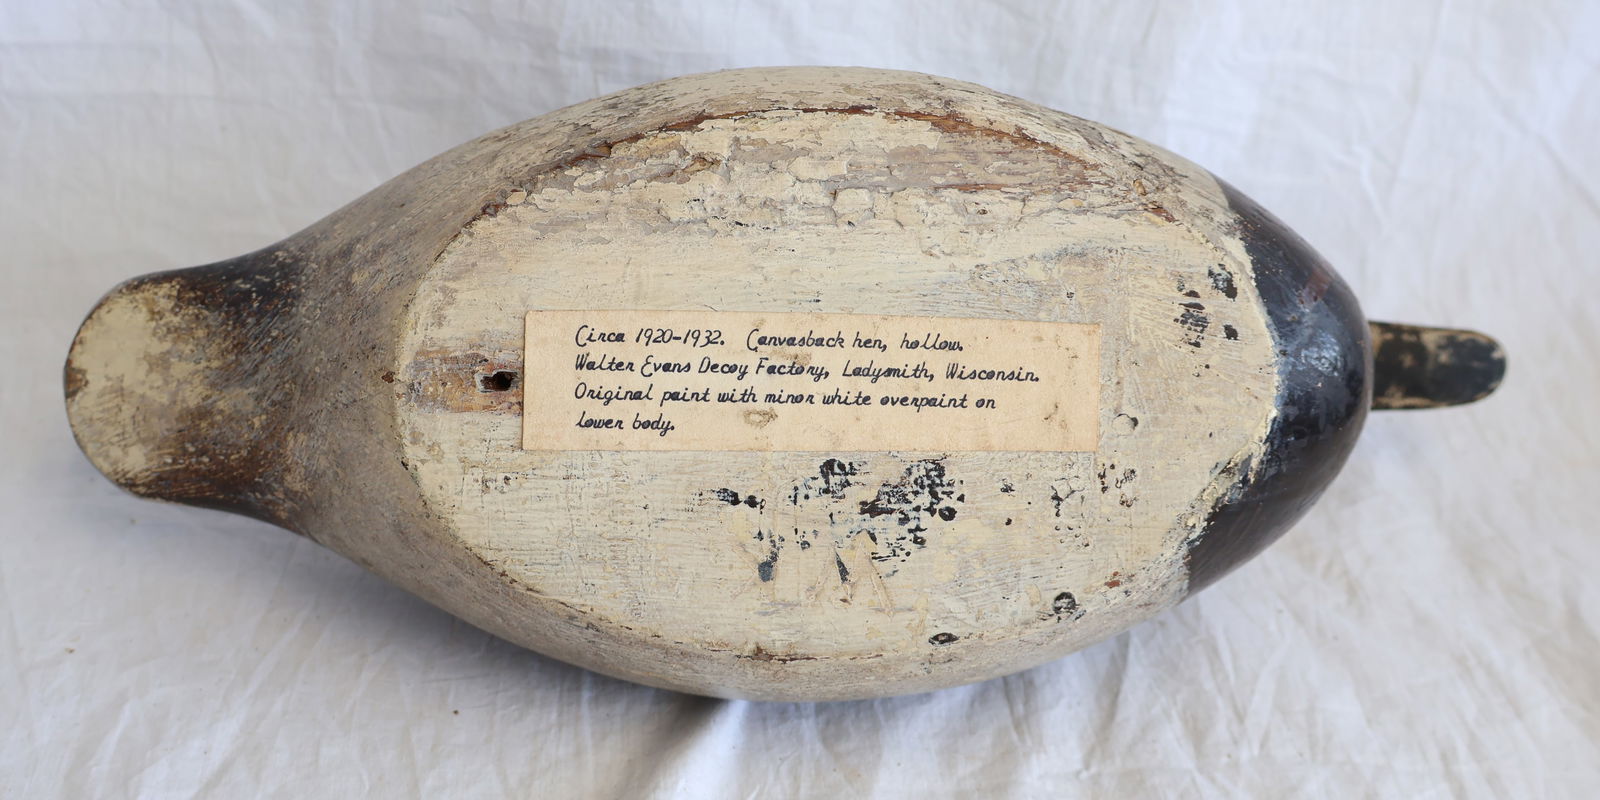 Circa 1920-1932. Canvasback hen, hollow.
Walter Evans Decoy Factory, Ladysmith, Wisconsin.
Original paint with minor white overpaint on
lower body.